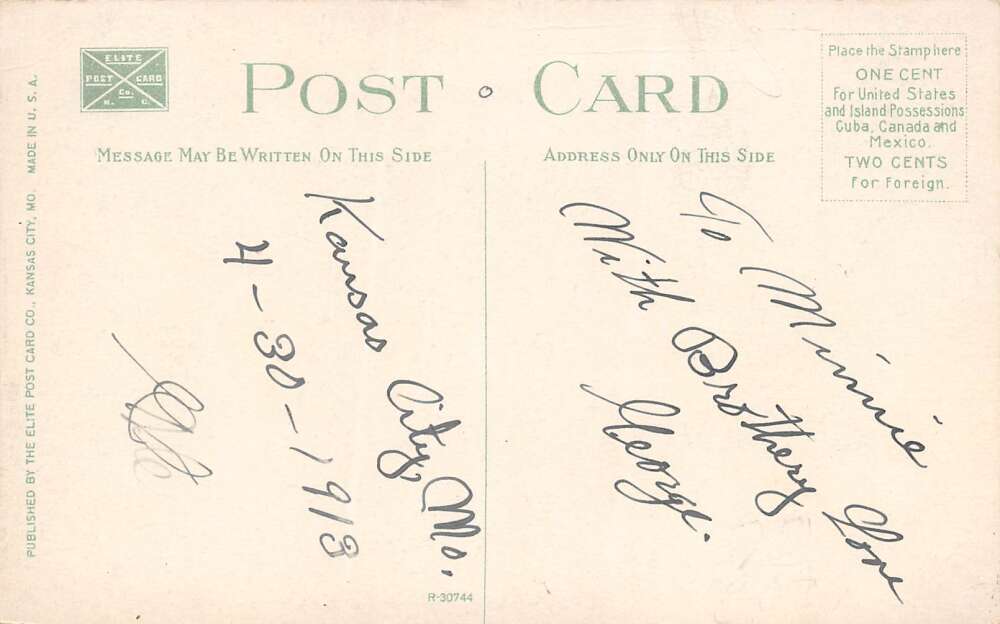 ELITE
POST CARD
Co.
K. C.
POST CARD
MESSAGE MAY BE WRITTEN ON THIS SIDE
ADDRESS ONLY ON THIS SIDE
Place the Stamp here
ONE CENT
For United States
and Island Possessions
Cuba, Canada and
Mexico.
TWO CENTS
For Foreign.
Kansas City, Mo.
4-30-1913
To Minnie
With Brothery Love
George.
R-30744
PUBLISHED BY THE ELITE POST CARD CO., KANSAS CITY, MO. MADE IN U. S. A.